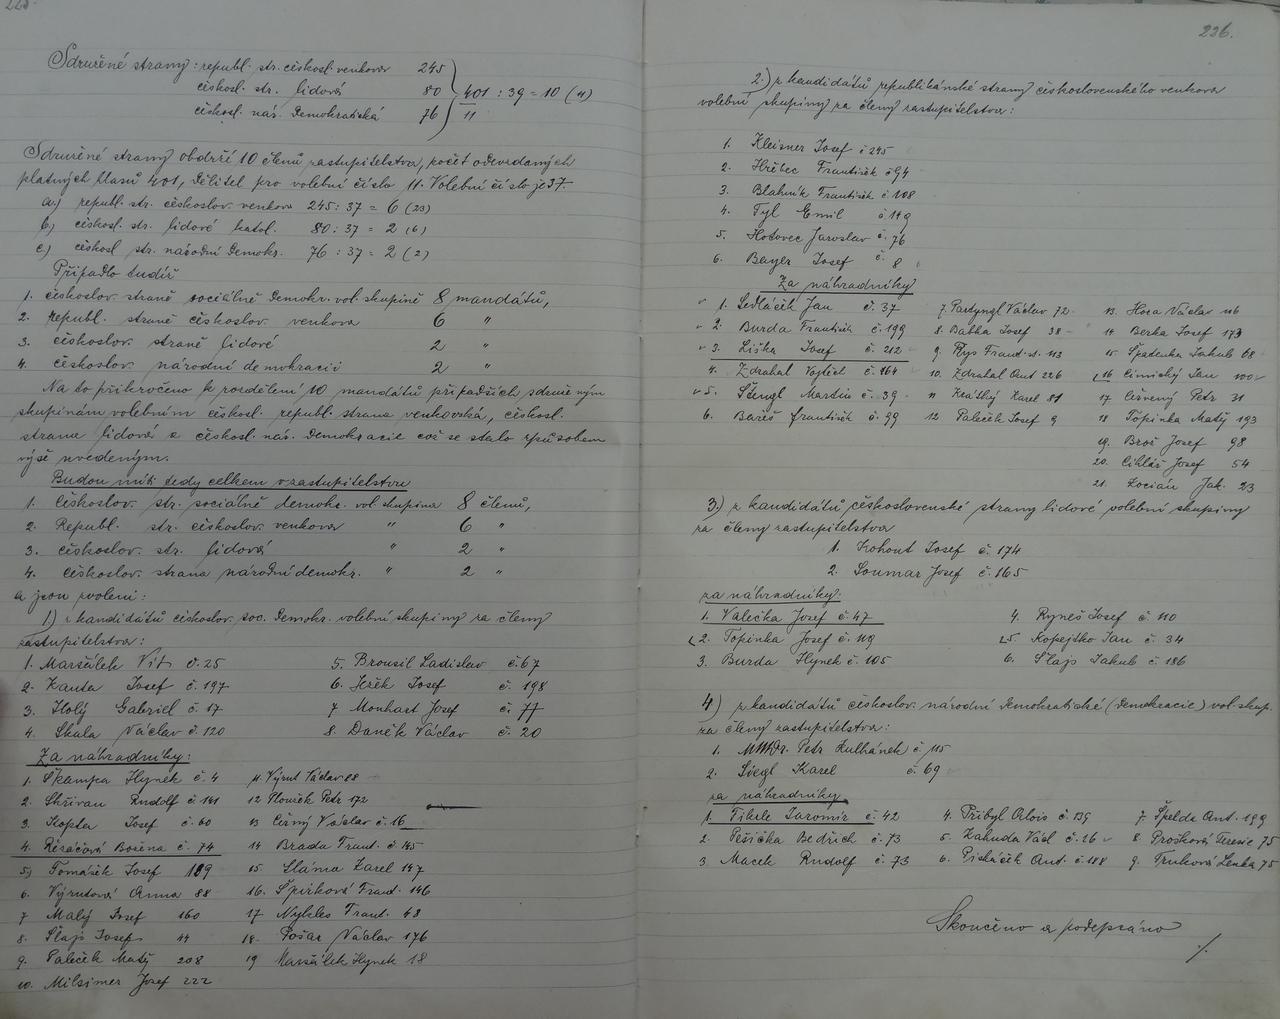 225.
Sdružené strany: republ. str. českosl. venkova 245
českosl. str. lidová 80 401 : 39 = 10 (11)
českosl. nár. demokratická 76 11
Sdružené strany obdrží 10 členů zastupitelstva, počet odevzdaných
platných hlasů 401, dělitel pro volební číslo 11. Volební číslo je 37.
a) republ. str. českoslov. venkova 245 : 37 = 6 (23)
b) českosl. str. lidové katol. 80 : 37 = 2 (6)
c) českosl. str. národní demokr. 76 : 37 = 2 (2)
Připadlo tudíž
1. českoslov. straně sociálně demokr. vol. skupině 8 mandátů,
2. republ. straně českoslov. venkova 6 "
3. českoslov. straně lidové 2 "
4. českoslov. národní demokracii 2 "
Na to přikročeno k rozdělení 10 mandátů připadších sdruženým
skupinám volebním českosl. republ. strana venkovská, českosl.
strana lidová a českosl. nár. demokracie což se stalo způsobem
výše uvedeným.
Budou míti tedy celkem v zastupitelstvu
1. českoslov. str. sociálně demokr. vol. skupina 8 členů,
2. Republ. str. českoslov. venkova " 6 "
3. českoslov. str. lidová " 2 "
4. českoslov. strana národní demokr. " 2 "
a jsou zvoleni:
1) z kandidátů českoslov. soc. demokr. volební skupiny za členy
zastupitelstva:
1. Maršálek Vít č. 25 5. Brousil Ladislav č. 67
2. Kauta Josef č. 197 6. Ježek Josef č. 198
3. Holý Gabriel č. 17 7 Monhart Josef č. 77
4. Skala Václav č. 120 8. Daněk Václav č. 20
Za náhradníky:
1. Škampa Hynek č. 4 11. Výrut Václav 88
2. Skřivan Rudolf č. 161 12 Ploužek Petr 172
3. Kopta Josef č. 60 13 Černý Václav č. 16
4. Řezáčová Božena č. 74 14 Brada Frant. č. 145
5) Tomášek Josef 189 15. Sláma Karel 147
6. Výrutová Anna 88 16. Špirková Frant. 146
7 Malý Josef 160 17 Nykles Frant. 48
8. Šlajs Josef 44 18. Pošar Václav 176
9. Paleček Matěj 208 19 Maršálek Hynek 18
10. Milsimer Josef 222
226.
2.) z kandidátů republikánské strany československého venkova
volební skupiny za členy zastupitelstva:
1. Kleisner Josef č. 245
2. Hřebec František č. 94
3. Blahník František č. 108
4. Tyl Emil č. 119
5. Hotovec Jaroslav č. 76
6. Bayer Josef č. 8
Za náhradníky
1. Sedláček Jan č. 37 7. Pastyngl Václav 72 13. Hora Václav 116
2. Burda František č. 199 8. Babka Josef 38 14 Berka Josef 173
3. Liška Josef č. 212 9. Rys Frant. st. 113 15. Špadenka Jakub 68
4. Zdrahal Vojtěch č. 164 10. Zdrahal Ant. 226 16 Čimický Jan 100
5. Štengl Martin č. 39 11 Krátký Karel 81 17 Červený Petr 31
6. Bareš František č. 99 12 Paleček Josef 9 18 Topinka Matěj 193
19. Brož Josef 98
20. Cihlář Josef 54
21. Kocián Jak. 23
3.) z kandidátů československé strany lidové volební skupiny
za členy zastupitelstva
1. Kohout Josef č. 174
2. Soumar Josef č. 165
za náhradníky:
1. Valečka Josef č. 47 4. Ryneš Josef č. 110
2. Topinka Josef č. 119 5. Kopejsko Jan č. 34
3. Burda Hynek č. 105 6. Šlajs Jakub č. 186
4) z kandidátů českoslov. národní demokratické (demokracie) vol. skup.
za členy zastupitelstva:
1. MUDr. Petr Zulhánek č. 115
2. Siegl Karel č. 69
za náhradníky
1. Fikrle Jaromír č. 42 4. Přibyl Alois č. 139 7. Špelda Ant. 199
2. Pešička Bedřich č. 73 5. Zahuda Václ. č. 26 8. Prošková Terezie 75
3 Macek Rudolf č. 73 6. Piskáček Ant. č. 188 9. Truková Lenka 75
Skončeno a podepsáno